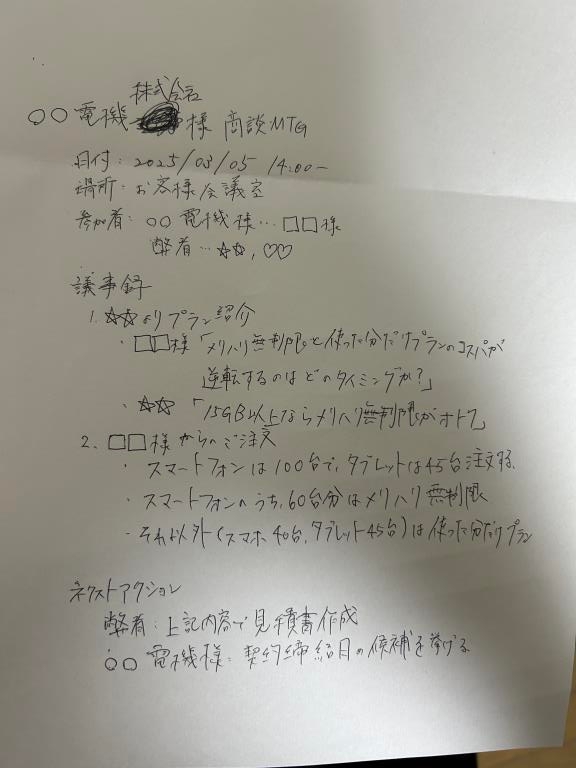 株式会社
○○電機 様 商談MTG
日付：2025/03/05 14:00-
場所：お客様会議室
参加者：○○電機様…□□様
弊者…☆☆，♡♡
議事録
1. ☆☆よりプラン紹介
・□□様「メリハリ無制限と使った分だけプランのコスパが
逆転するのはどのタイミングか？」
・☆☆「15GB以上ならメリハリ無制限がオトク」
2. □□様からのご注文
・スマートフォンは100台で、タブレットは45台注文する。
・スマートフォンのうち、60台分はメリハリ無制限
・それ以外(スマホ40台、タブレット45台)は使った分だけプラン
ネクストアクション
弊者：上記内容で見積書作成
○○電機様：契約締結日の候補を挙げる